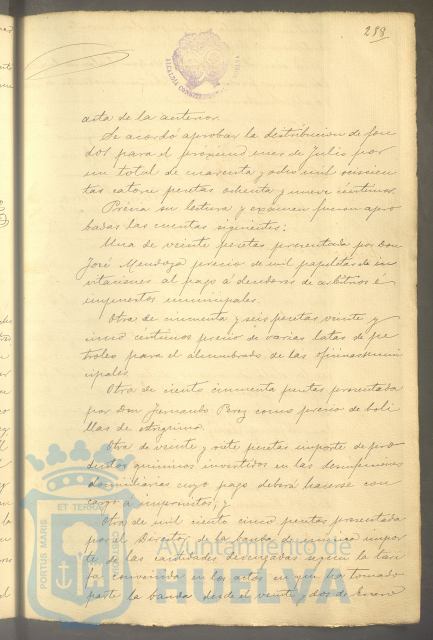 298
ALCALDIA CONSTITUCIONAL
acta de la anterior.
Se acordó aprobar la distribucion de fon
dos para el próximo mes de Julio por
un total de cuarenta y ocho mil seiscien
tas catorce pesetas ochenta y nueve centimos.
Prévia su lectura y exámen fueron apro
badas las cuentas siguientes:
Una de veinte pesetas presentada por Don
José Mendoza precio de mil papeletas de in
vitaciones al pago á deudores de arbitrios é
impuestos municipales.
Otra de cincuenta y seis pesetas veinte y
cinco céntimos precio de varias latas de pe
troleo para el alumbrado de las oficinas muni
cipales
Otra de ciento cincuenta pesetas presentada
por Don Fernando Perez como precio de boli
llas de estrignina.
Otra de veinte y siete pesetas importe de pro
ductos quimicos invertidos en las desinfecciones
domiciliarias cuyo pago deberá hacerse con
cargo a imprevistos, y
Otra de mil ciento cinco pesetas presentada
por el Director de la banda de musica impor
te de las cantidades devengadas segun la tari
fa convenida en los actos en que ha tomado
parte la banda desde el veinte y dos de Enero
PORTUS MARIS
ET TERRAE
Ayuntamiento de
HUELVA